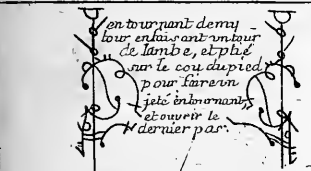 en tournant demy
tour en faisant un tour
de Iambe, et plié
sur le cou du pied
pour faire un
jeté en tournant,
et ouvrir le
dernier pas.